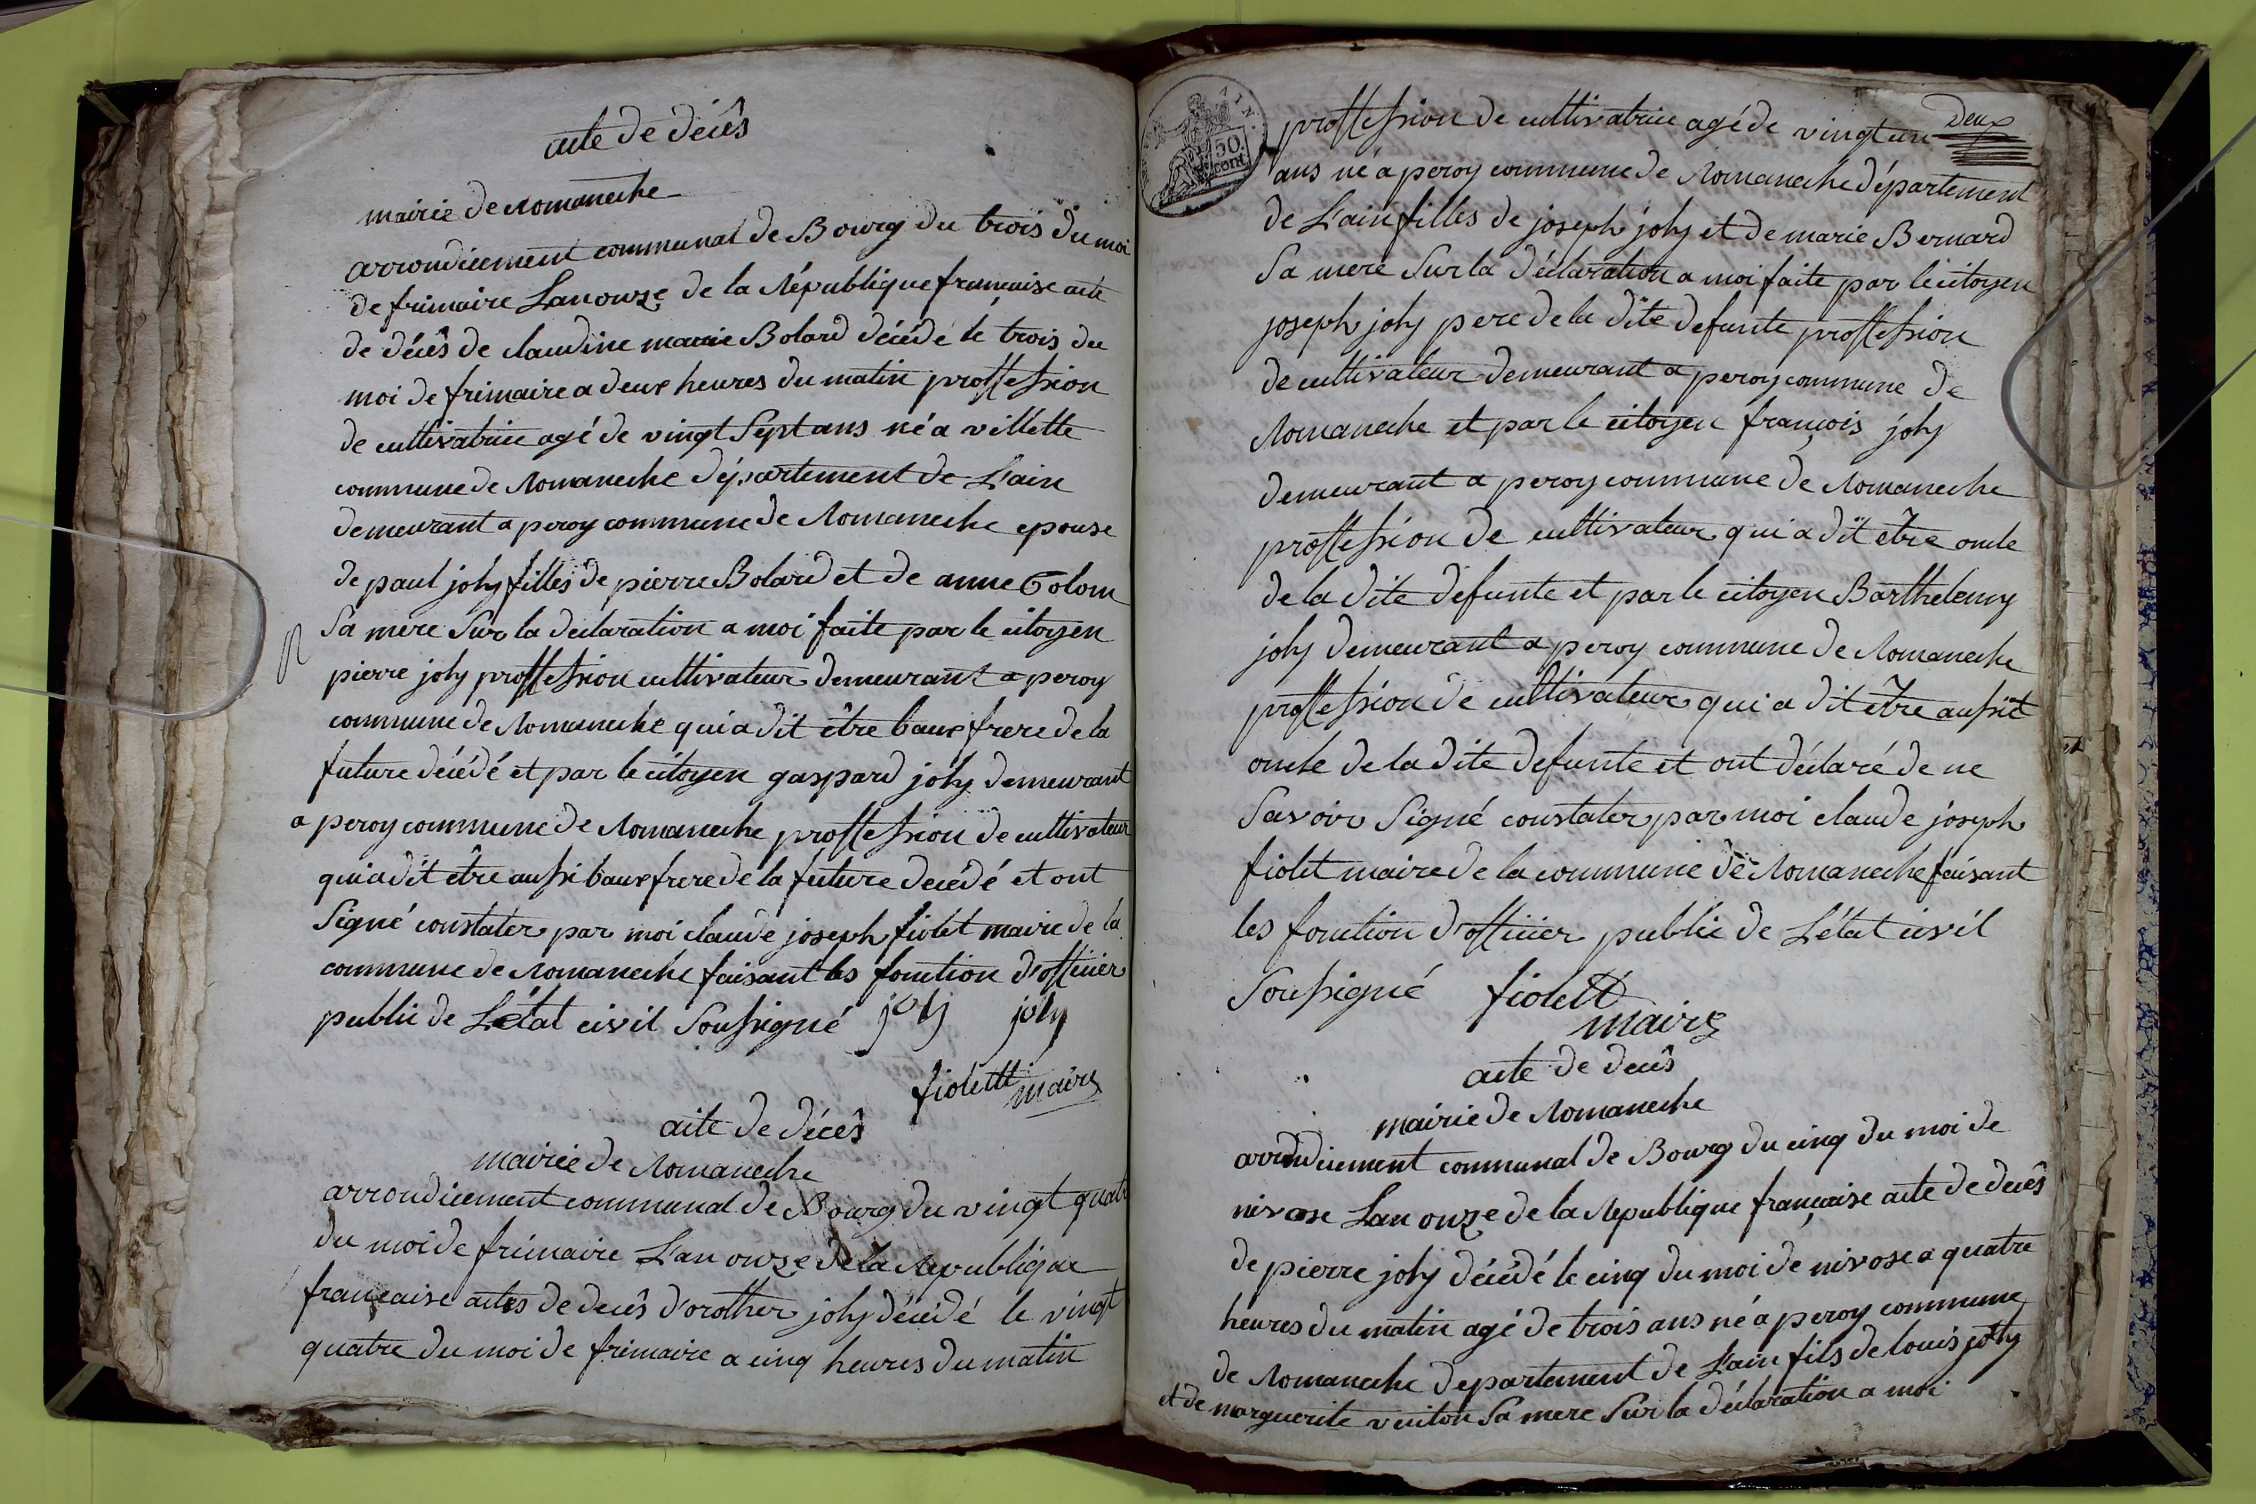 acte de décês
mairie de Romaneche
arrondicement communal de Bourg du trois du moi
de frimaire Lan onze de la République française acte
de décês de claudine marie Bolard décédé le trois du
moi de frimaire a deux heures du matin proffession
de cultivatrice agé de vingt Sept ans né a villette
commune de Romaneche département de L'ain
demeurant a peroy commune de Romaneche epouse
de paul joly filles de pierre Bolard et de anne Colom
Sa mere Sur la déclaration a moi faite par le citoyen
pierre joly proffession cultivateur demeurant a peroy
commune de Romaneche qui a dit être baux frere de la
future décédé et par le citoyen gaspard joly demeurant
a peroy commune de Romaneche proffession de cultivateur
qui a dit être aussi baux frere de la future décédé et ont
Signé constater par moi claude joseph fiolet maire de la
commune de Romaneche faisant les fonction d'officier
public de L'état civil Soussigné joly joly
fiolett maire
acte de décês
mairie de Romaneche
arrondicement communal de Bourg du vingt quatre
du moi de frimaire L'an onze de la République
française actes de decês d'orother joly décédé le vingt
quatre du moi de frimaire a cinq heures du matin
AIN.
50.
cent.
Deux
proffession de cultivatrice agé de vingt un
ans né a peroy commune de Romaneche département
de L'ain filles de joseph joly et de marie Bernard
Sa mere Sur la déclaration a moi faite par le citoyen
joseph joly pere de la dite defunte proffession
de cultivateur demeurant a peroy commune de
Romaneche et par le citoyen françois joly
demeurant a peroy commune de Romaneche
proffession de cultivateur qui a dit être oncle
de la dite defunte et par le citoyen Barthelemy
joly demeurant a peroy commune de Romaneche
proffession de cultivateur qui a dit être aussit
oncle de la dite defunte et ont déclaré de ne
Savoir Signé constater par moi claude joseph
fiolet maire de la commune de Romaneche faisant
les fonction d'officier public de L'état civil
Soussigné fiolett
maire
acte de decês
mairie de Romaneche
arrondicement communal de Bourg du cinq du moi de
nivose Lan onze de la République française acte de decês
de pierre joly décédé le cinq du moi de nivose a quatre
heures du matin agé de trois ans né a peroy commune
de Romaneche departement de L'ain fils de louis joly
et de marguerite vuiton Sa mere Sur la déclaration a moi